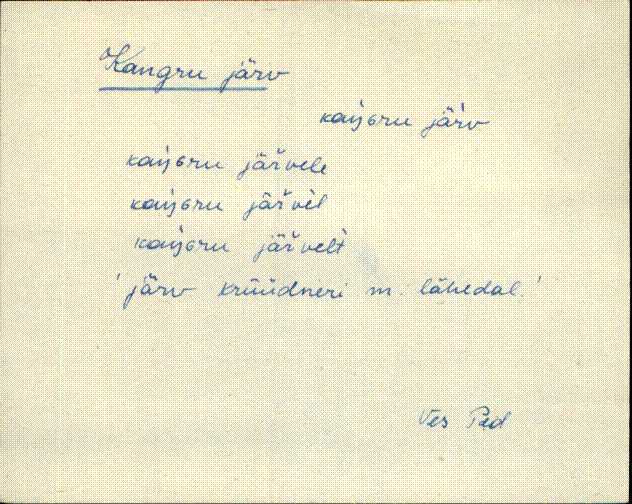 Kangru järv
kaŋGru jäŕv
kaŋGru jäřvele
kaŋGru jäřvèl
kaŋGru jäřvelt̀
'järv krüüdneri m. lähedal.'
Ves Päd